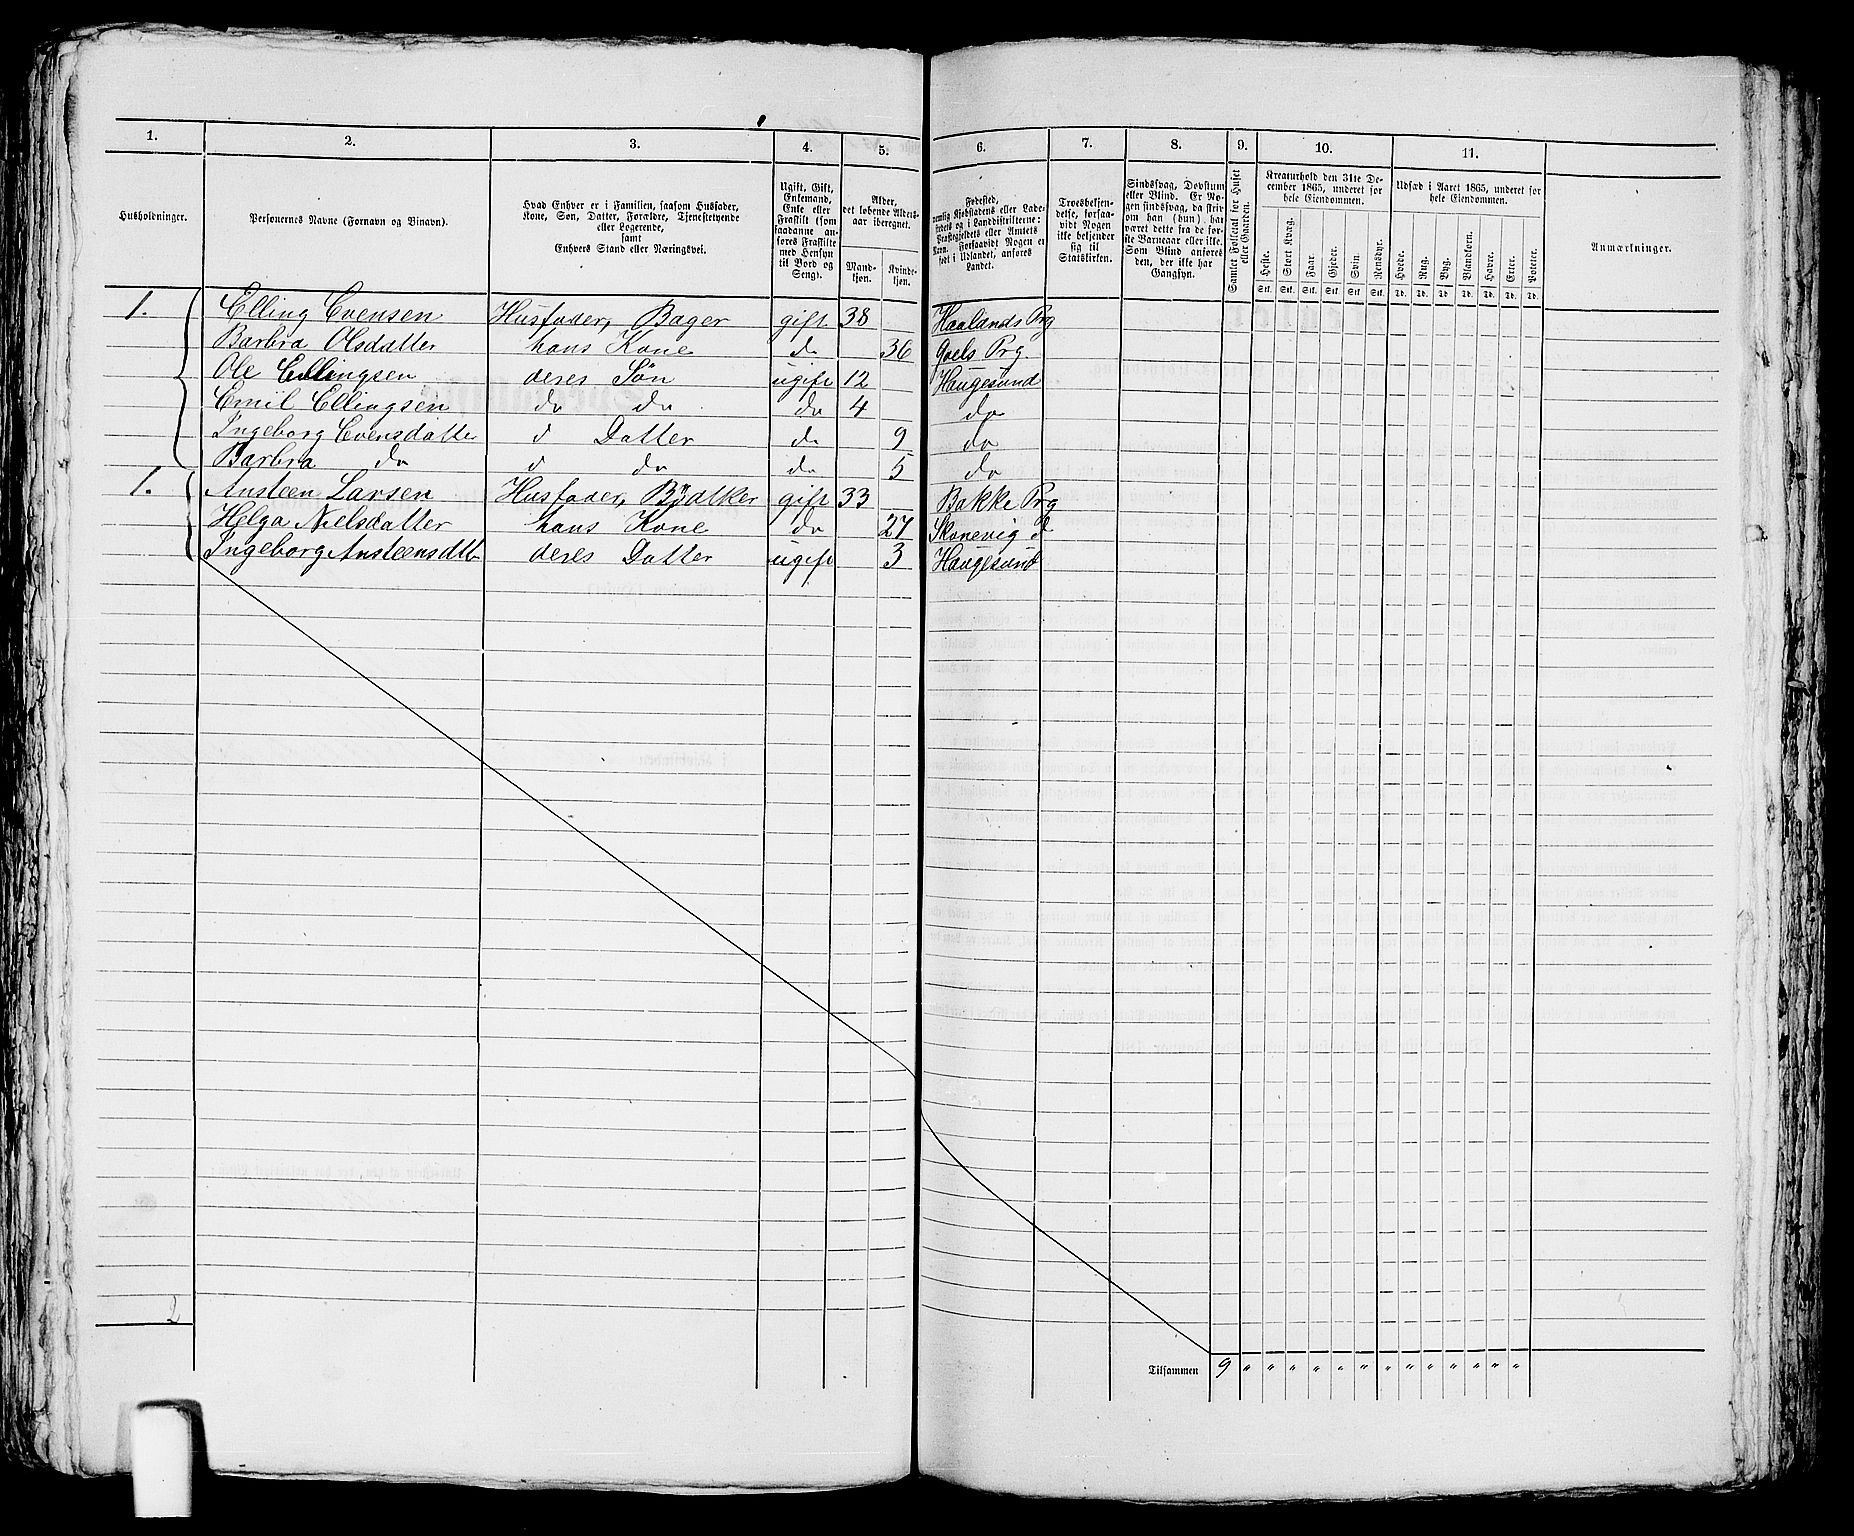 1. 2. 3. 4. 5. 6. 7. 8. 9. 10. 11.
Husholdninger.
Personernes Navne (Fornavn og Binavn).
Hvad Enhver er i Familien, saasom Husfader, Kone, Søn, Datter, Forældre, Tjenestetyende eller Logerende, samt Enhvers Stand eller Næringsvei.
Ugift, Gift, Enkemand, Enke eller Fraskilt (som saadanne anføres Fraskilte med Hensyn til Bord og Seng).
Alder, det løbende Alders-aar iberegnet.
Mand-kjøn. Kvinde-kjøn.
Fødested, nemlig Kjøbstadens eller Ladestedets og i Landdistrikterne: Præstegjeldets eller Amtets Navn. Forsaavidt Nogen er født i Udlandet, anføres Landet.
Troesbekjendelse, forsaavidt Nogen ikke bekjender sig til Statskirken.
Sindssvag, Døvstum eller Blind. Er Nogen sindssvag, da skrives om han (hun) har været dette fra de første Barneaar eller ikke. Som Blind anføres den, der ikke har Gangsyn.
Samlet Folketal for Huset eller Gaarden.
Kreaturhold den 31te December 1865, underet for hele Eiendommen.
Heste. Stort Kvæg. Faar. Gjeder. Svin. Rensdyr.
Stk. Stk. Stk. Stk. Stk. Stk.
Udsæd i Aaret 1865, underet for hele Eiendommen.
Hvede. Rug. Byg. Blandkorn. Havre. Erter. Poteter.
Td. Td. Td. Td. Td. Td. Td.
Anmærkninger.
1. Elling Evensen Husfader, Bager gift 38 Haalands Prg
Barbra Olsdatter hans Kone do 36 Prg.
Ole Ellingsen deres Søn ugift 12 Haugesund
Emil Ellingsen do do do 4 do
Ingeborg Evensdatter d Datter do 9 do
Barbra do d do do 5 do
1. Ansteen Larsen Husfader, Bødtker gift 33 Bakke Prg
Helga Nielsdatter hans Kone do 27 Skonevig d
Ingeborg Ansteensdtt deres Datter ugift 3 Haugesund
2
Tilsammen 9 " " " " " " " " " " " "